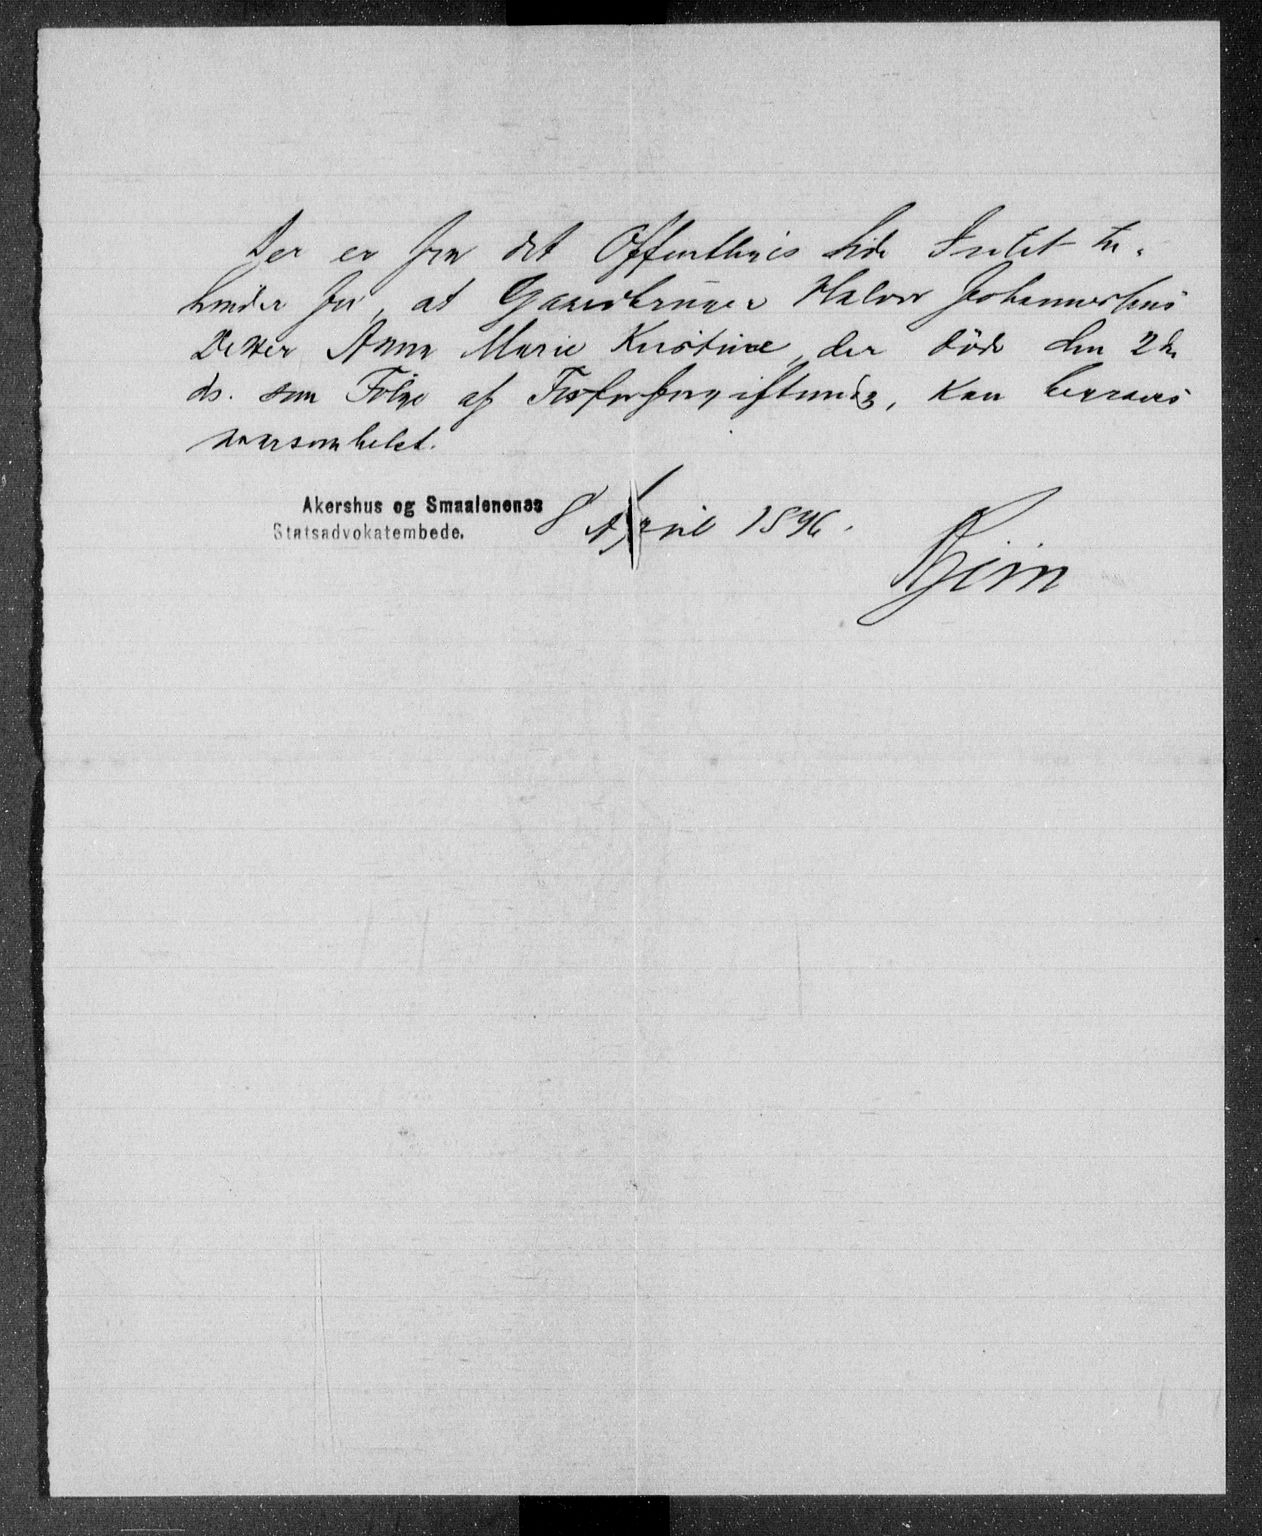 Der er fra det Offentliges Side Intet til
hinder for, at Gaardbruger Halvor Johannesens
Datter Anna Marie Kristine, der døde den 2den
ds. som Følge af Fosforforgiftning, kan begraves
naarsomhelst.
Akershus og Smaalenenes 8 April 1896.
Statsadvokatembede.